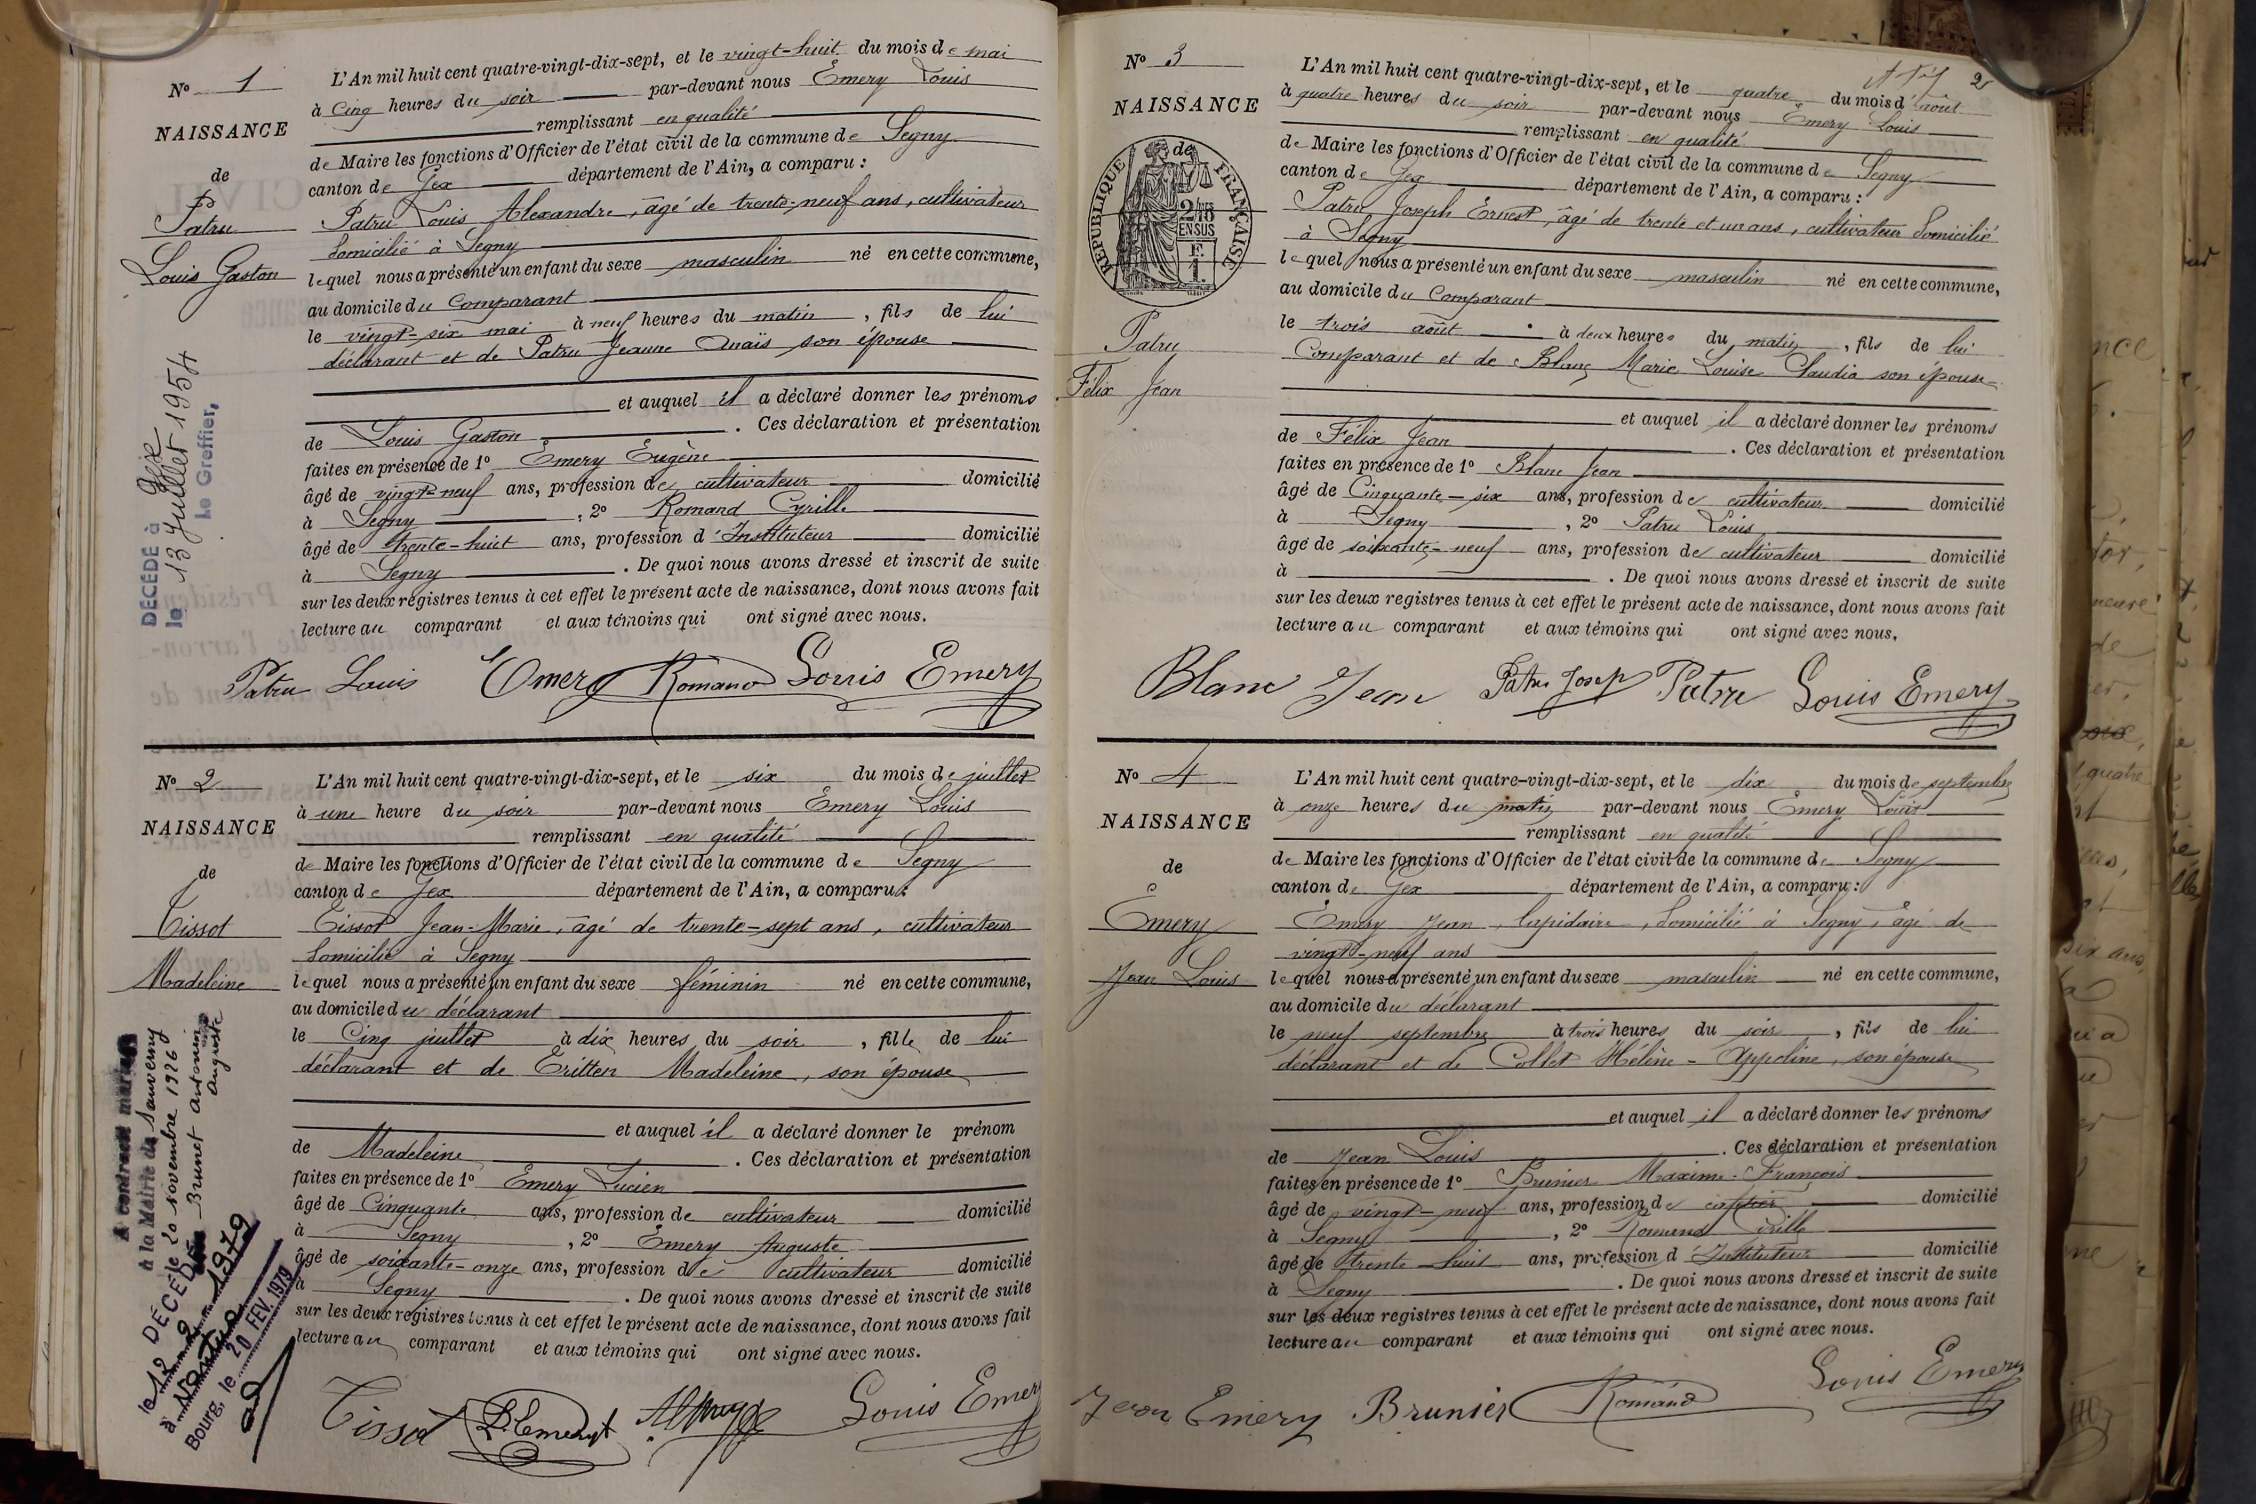 N° 1
NAISSANCE
de
Patru
Louis Gaston
DÉCÉDÉ à Gex
le 13 Juillet 1954
Le Greffier,
L'An mil huit cent quatre-vingt-dix-sept, et le vingt-huit du mois de mai
à cinq heures du soir par-devant nous Emery Louis
remplissant en qualité
de Maire les fonctions d'Officier de l'état civil de la commune de Segny
canton de Gex département de l'Ain, a comparu :
Patru Louis Alexandre, âgé de trente-neuf ans, cultivateur
domicilié à Segny
lequel nous a présenté un enfant du sexe masculin né en cette commune,
au domicile du comparant
le vingt-six mai à neuf heures du matin, fils de lui
déclarant et de Patru Jeanne Anaïs son épouse
et auquel il a déclaré donner les prénoms
de Louis Gaston. Ces déclaration et présentation
faites en présence de 1° Emery Eugène
âgé de vingt-neuf ans, profession de cultivateur domicilié
à Segny, 2° Romand Cyrille
âgé de trente-huit ans, profession d'Instituteur domicilié
à Segny. De quoi nous avons dressé et inscrit de suite
sur les deux registres tenus à cet effet le présent acte de naissance, dont nous avons fait
lecture au comparant et aux témoins qui ont signé avec nous.
Patru Louis Emery Romand Louis Emery
N° 2
NAISSANCE
de
Tissot
Madeleine
A contracté mariage
à la Mairie de Sauverny
le 20 novembre 1926
Brunet Antonin
Auguste
DÉCÉDÉE
le 12 2 1979
à Nantua
Bourg, le 20 FEV. 1979
L'An mil huit cent quatre-vingt-dix-sept, et le six du mois de juillet
à une heure du soir par-devant nous Emery Louis
remplissant en qualité
de Maire les fonctions d'Officier de l'état civil de la commune de Segny
canton de Gex département de l'Ain, a comparu :
Tissot Jean-Marie, âgé de trente-sept ans, cultivateur
domicilié à Segny
lequel nous a présenté un enfant du sexe féminin né en cette commune,
au domicile du déclarant
le cinq juillet à dix heures du soir, fille de lui
déclarant et de Tritten Madeleine, son épouse
et auquel il a déclaré donner le prénom
de Madeleine. Ces déclaration et présentation
faites en présence de 1° Emery Lucien
âgé de Cinquante ans, profession de cultivateur domicilié
à Segny, 2° Emery Auguste
âgé de soixante-onze ans, profession de cultivateur domicilié
à Segny. De quoi nous avons dressé et inscrit de suite
sur les deux registres tenus à cet effet le présent acte de naissance, dont nous avons fait
lecture au comparant et aux témoins qui ont signé avec nous.
Tissot Louis Emery
2
N° 3
NAISSANCE
de
RÉPUBLIQUE FRANÇAISE
2/10
EN SUS
F.
1
Patru
Félix Jean
L'An mil huit cent quatre-vingt-dix-sept, et le quatre du mois d'août
à quatre heures du soir par-devant nous Emery Louis
remplissant en qualité
de Maire les fonctions d'Officier de l'état civil de la commune de Segny
canton de Gex département de l'Ain, a comparu :
Patru Joseph Ernest, âgé de trente et un ans, cultivateur domicilié
à Segny
lequel nous a présenté un enfant du sexe masculin né en cette commune,
au domicile du Comparant
le trois août à deux heures du matin, fils de lui
Comparant et de Blanc Marie Louise Claudia son épouse
et auquel il a déclaré donner les prénoms
de Félix Jean. Ces déclaration et présentation
faites en présence de 1° Blanc Jean
âgé de Cinquante-six ans, profession de cultivateur domicilié
à Segny, 2° Patru Louis
âgé de soixante-neuf ans, profession de cultivateur domicilié
à . De quoi nous avons dressé et inscrit de suite
sur les deux registres tenus à cet effet le présent acte de naissance, dont nous avons fait
lecture au comparant et aux témoins qui ont signé avec nous.
Blanc Jean Patru Josep Patru Louis Emery
N° 4
NAISSANCE
de
Emery
Jean Louis
L'An mil huit cent quatre-vingt-dix-sept, et le dix du mois de septembre
à onze heures du matin par-devant nous Emery Louis
remplissant en qualité
de Maire les fonctions d'Officier de l'état civil de la commune de Segny
canton de Gex département de l'Ain, a comparu :
Emery Jean, lapidaire, domicilié à Segny, âgé de
vingt-neuf ans
lequel nous a présenté un enfant du sexe masculin né en cette commune,
au domicile du déclarant
le neuf septembre à trois heures du soir, fils de lui
déclarant et de Collet Hélène-Appoline, son épouse
et auquel il a déclaré donner les prénoms
de Jean Louis. Ces déclaration et présentation
faites en présence de 1° Brunier Maxime-François
âgé de vingt-neuf ans, profession de domicilié
à Segny, 2° Romand Cirille
âgé de trente-huit ans, profession d'Instituteur domicilié
à Segny. De quoi nous avons dressé et inscrit de suite
sur les deux registres tenus à cet effet le présent acte de naissance, dont nous avons fait
lecture au comparant et aux témoins qui ont signé avec nous.
Jean Emery Brunier Romand Louis Emery